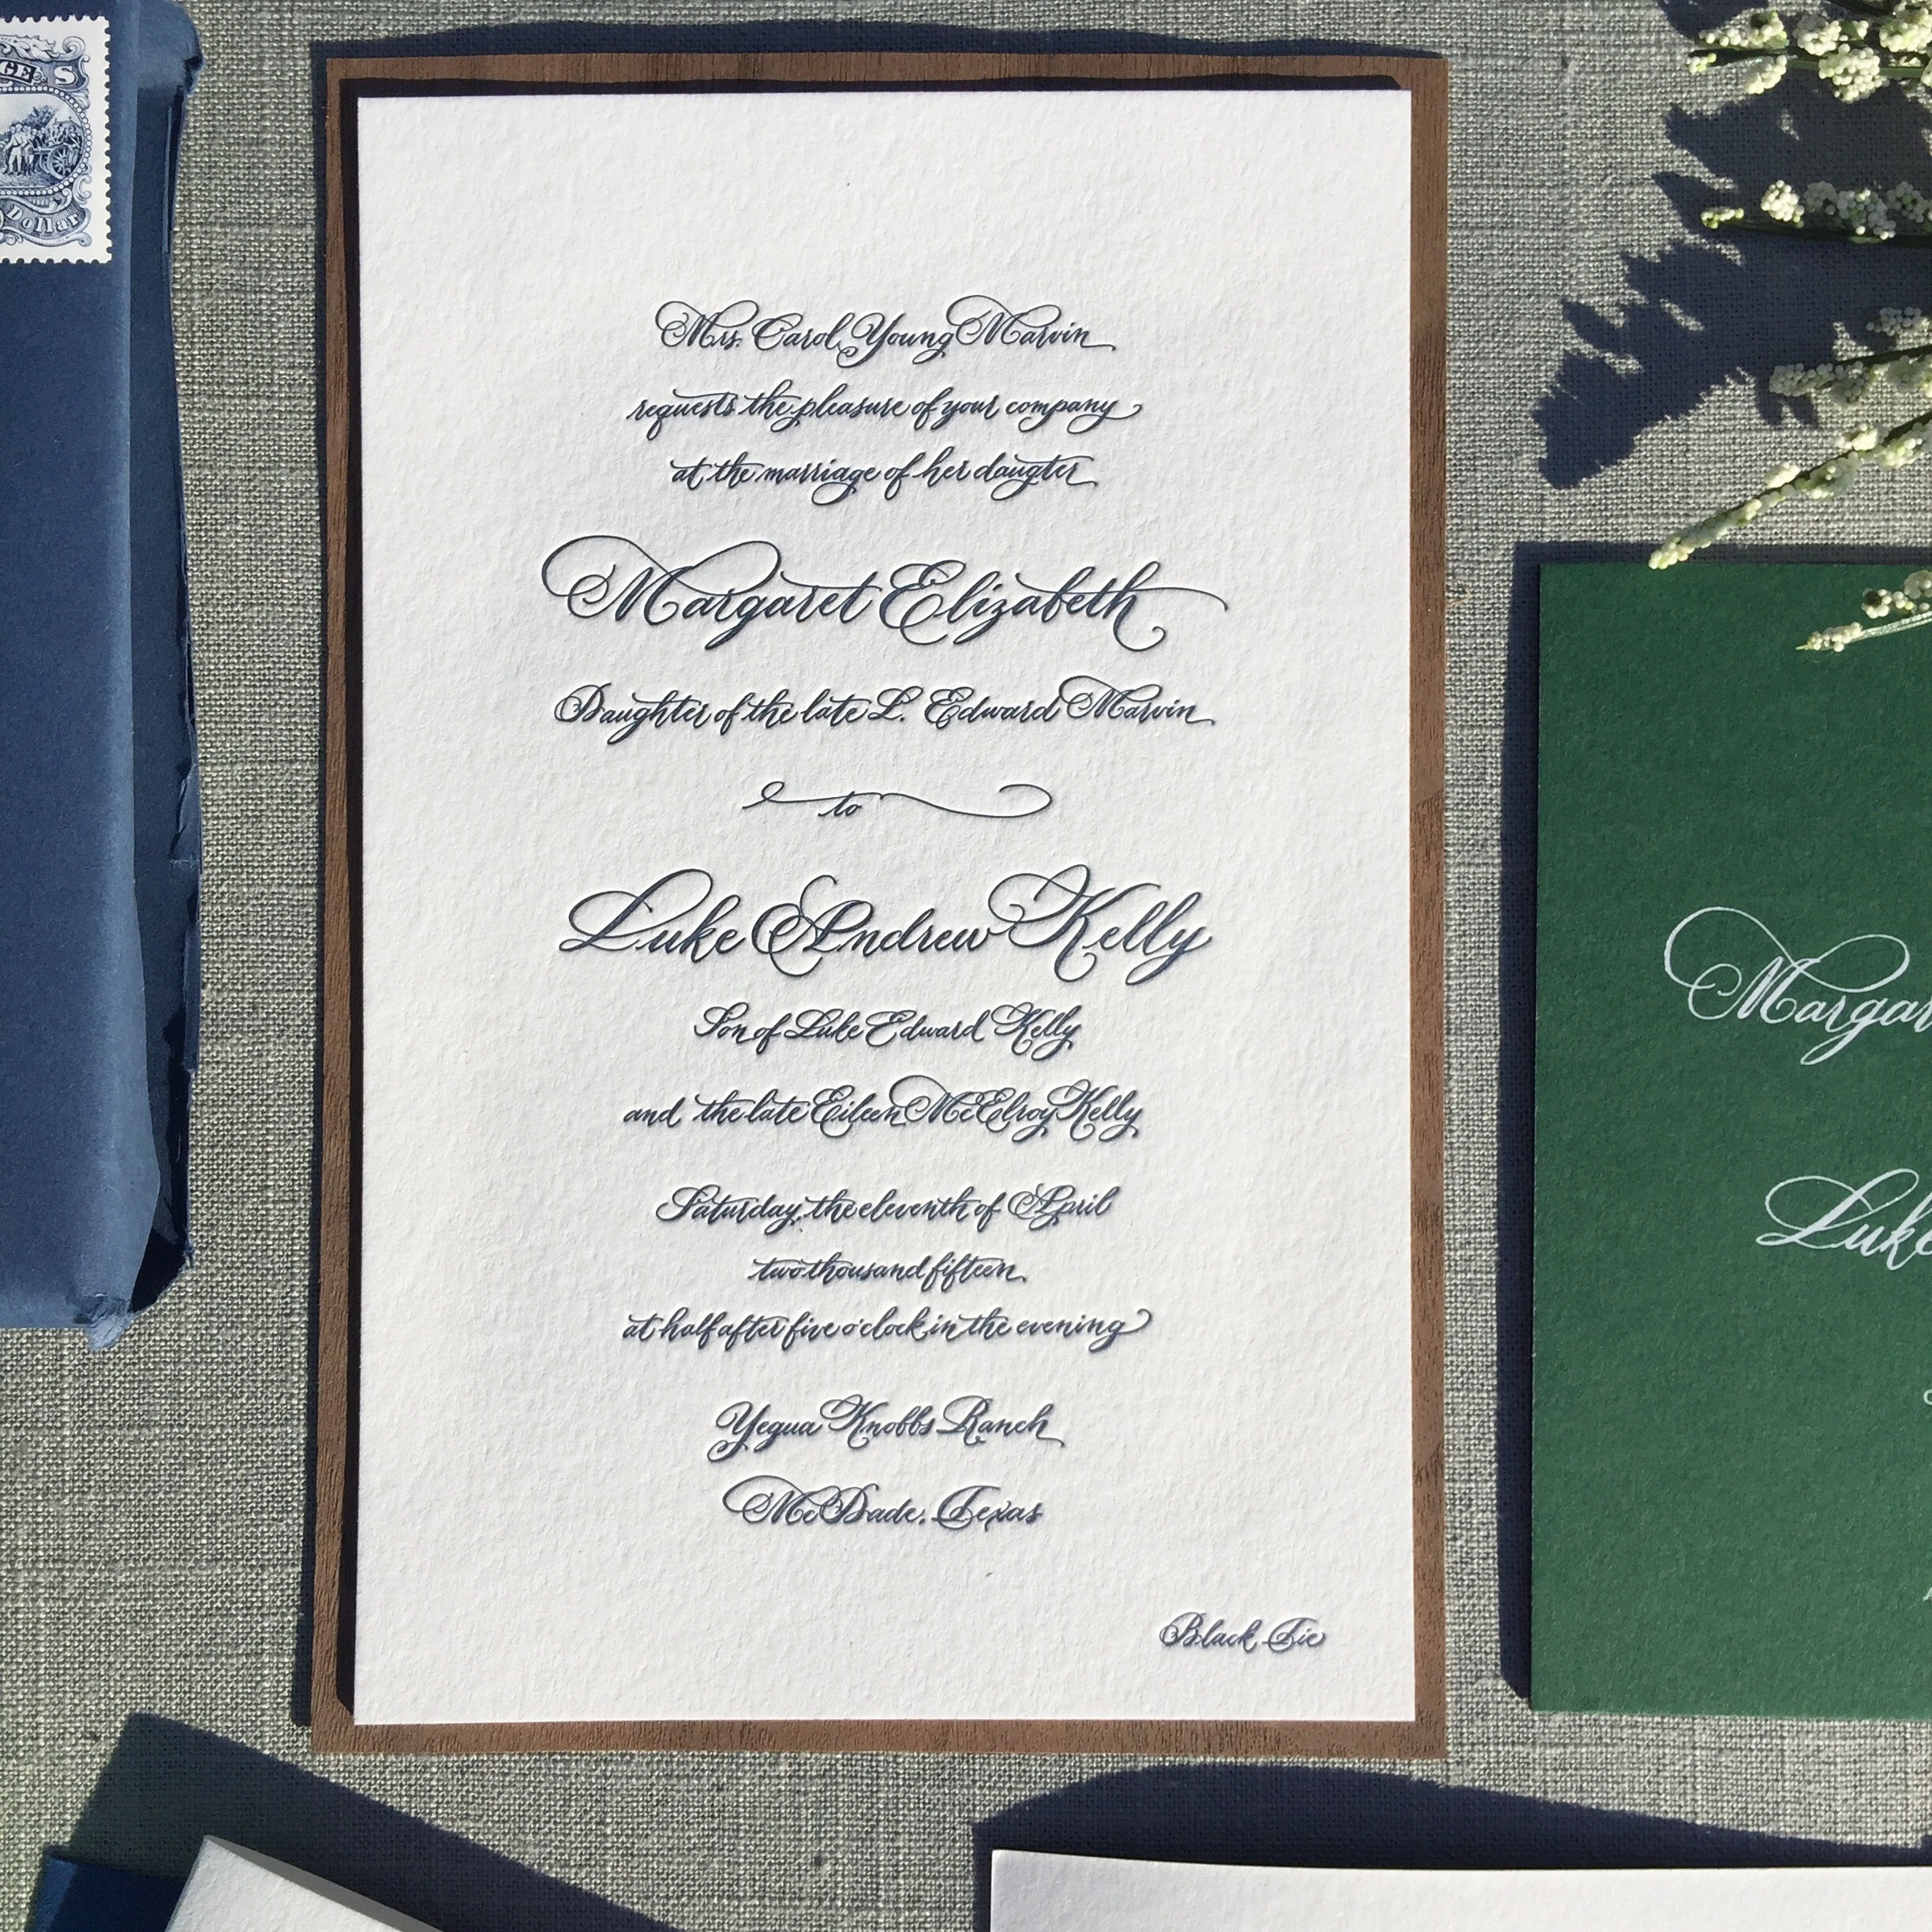 GE S
Dollar
Mrs. Carol Young Marvin
requests the pleasure of your company
at the marriage of her daugter
Margaret Elizabeth
Daughter of the late L. Edward Marvin
to
Luke Andrew Kelly
Son of Luke Edward Kelly
and the late Eileen McElroy Kelly
Saturday, the eleventh of April
two thousand fifteen
at half after five o'clock in the evening
Yegua Knobbs Ranch
McDade, Texas
Black Tie
Margar
Luke